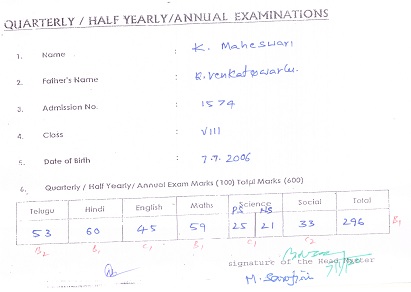 QUARTERLY / HALF YEARLY/ANNUAL EXAMINATIONS
1. Name : K. Maheswari
2. Father's Name : K. Venkateswarlu.
3. Admission No. : 1574
4. Class : VIII
5. Date of Birth : 7.9.2006
6. Quarterly / Half Yearly/ Annual Exam Marks (100) Total Marks (600)
Telugu Hindi English Maths Science Social Total
PS NS
53 60 45 59 25 21 33 296 B1
B2 B1 C1 B1 C1 C2
signature of the Head Master
M. Sarojini